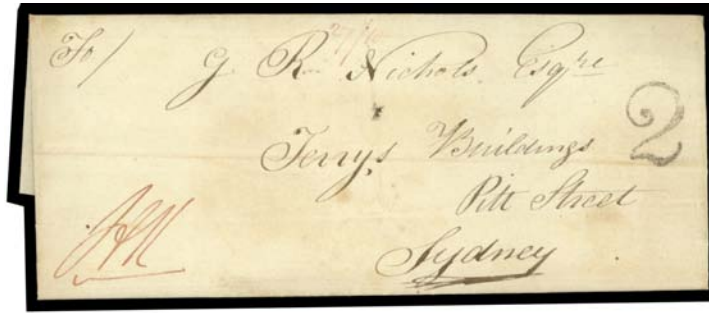 To/ G. R. Nichols Esqre
2
Terrys Buildings
Pitt Street
Sydney